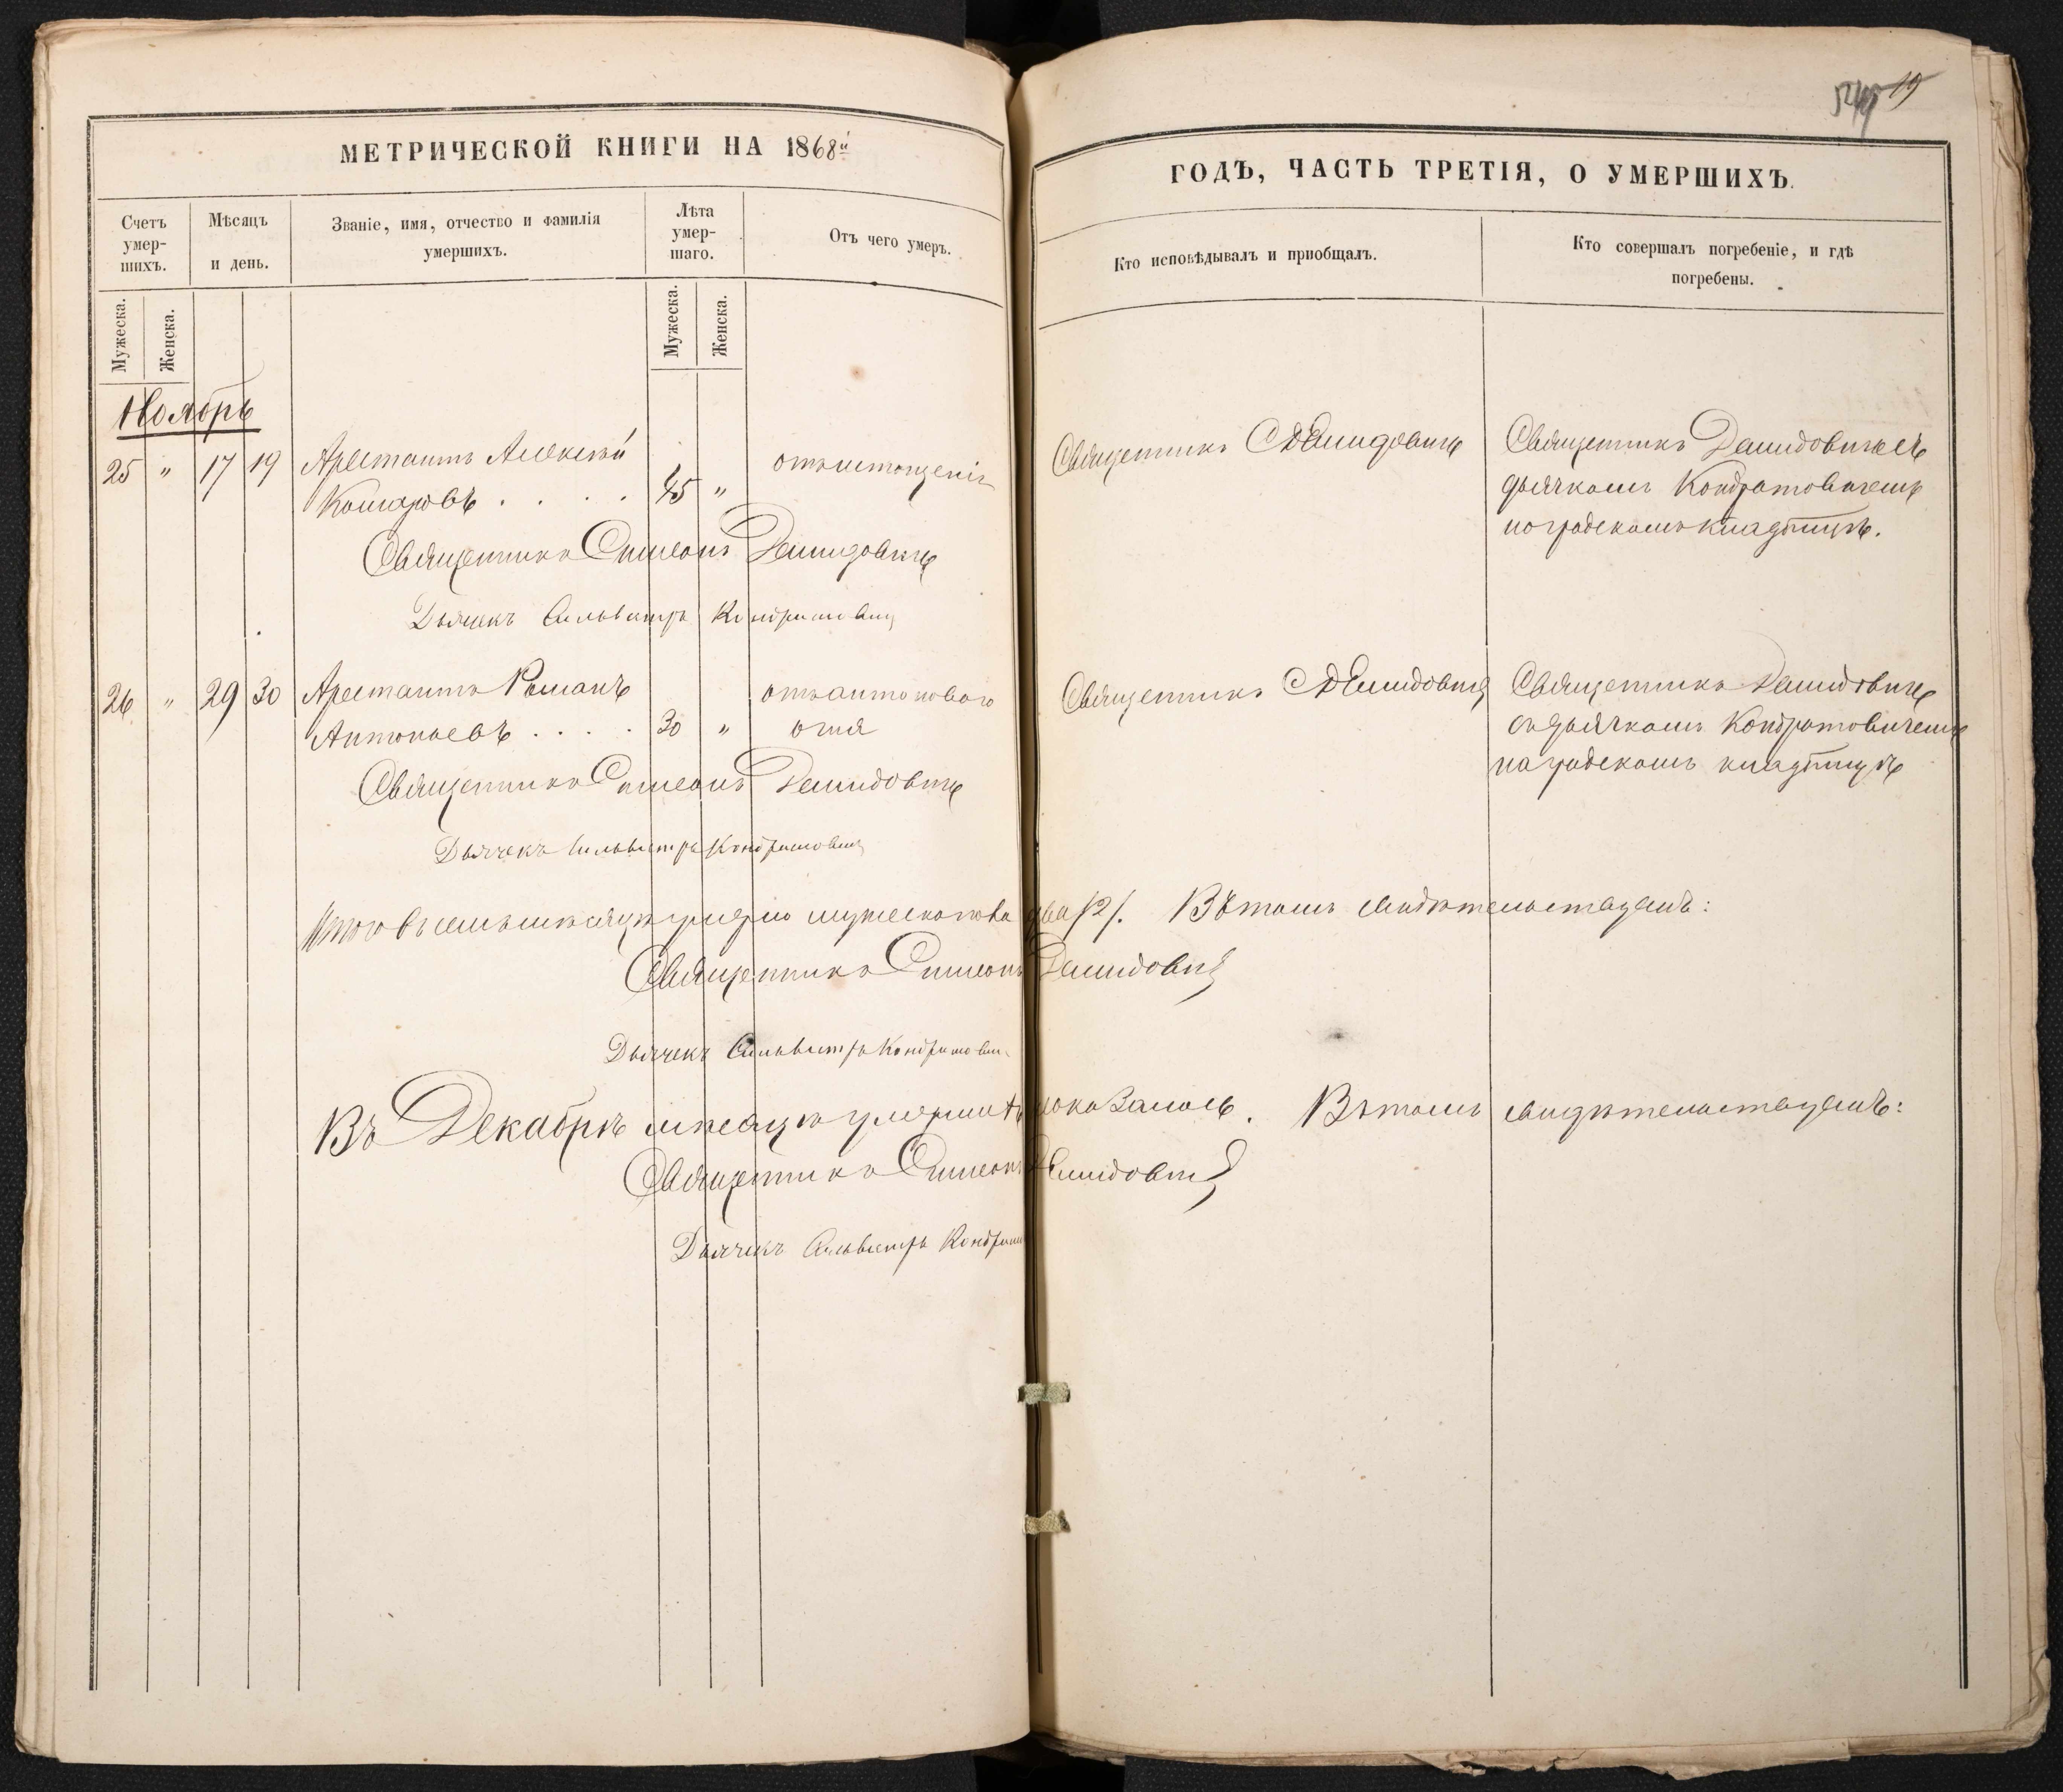 МЕТРИЧЕСКОЙ КНИГИ НА 1868й
Счетъ умер-шихъ.
Мѣсяцъ и день.
Званіе, имя, отчество и фамилія
умершихъ.
Лѣта умер-шаго.
Отъ чего умеръ.
Мужеска.
Женска.
Мужеска.
Женска.
Ноябрь
25 " 17 19 Арестантъ Алексѣй
Комаровъ . . . . 45 "
отъ истощенія
Священникъ Симеонъ Демидовичъ
Дьячекъ Сильвестръ Кондратович
26 " 29 30 Арестантъ Романъ
Антоновъ . . . . 30 "
отъ антонового
огня
Священникъ Симеонъ Демидовичъ
Дьячекъ Сильвестръ Кондратович
Итого въ семъ мѣсяцѣ умерло мужеска пола два /2/. Въ томъ свидѣтельствуемъ:
Священникъ Симеонъ Демидовичъ
Дьячекъ Сильвестръ Кондратович
Въ Декабрѣ мѣсяцѣ умершихъ не оказалось. Въ томъ свидѣтельствуемъ:
Священникъ Симеонъ Демидовичъ
Дьячекъ Сильвестръ Кондрат
19
ГОДЪ, ЧАСТЬ ТРЕТІЯ, О УМЕРШИХЪ.
Кто исповѣдывалъ и пріобщалъ.
Кто совершалъ погребеніе, и гдѣ
погребены.
Священникъ С Демидовичъ
Священникъ Демидовичъ съ
дьячкомъ Кондратовичемъ
на градскомъ кладбищѣ.
Священникъ С Демидовичъ
Священникъ Демидовичъ
съ дьячкомъ Кондратовичемъ
на градскомъ кладбищѣ